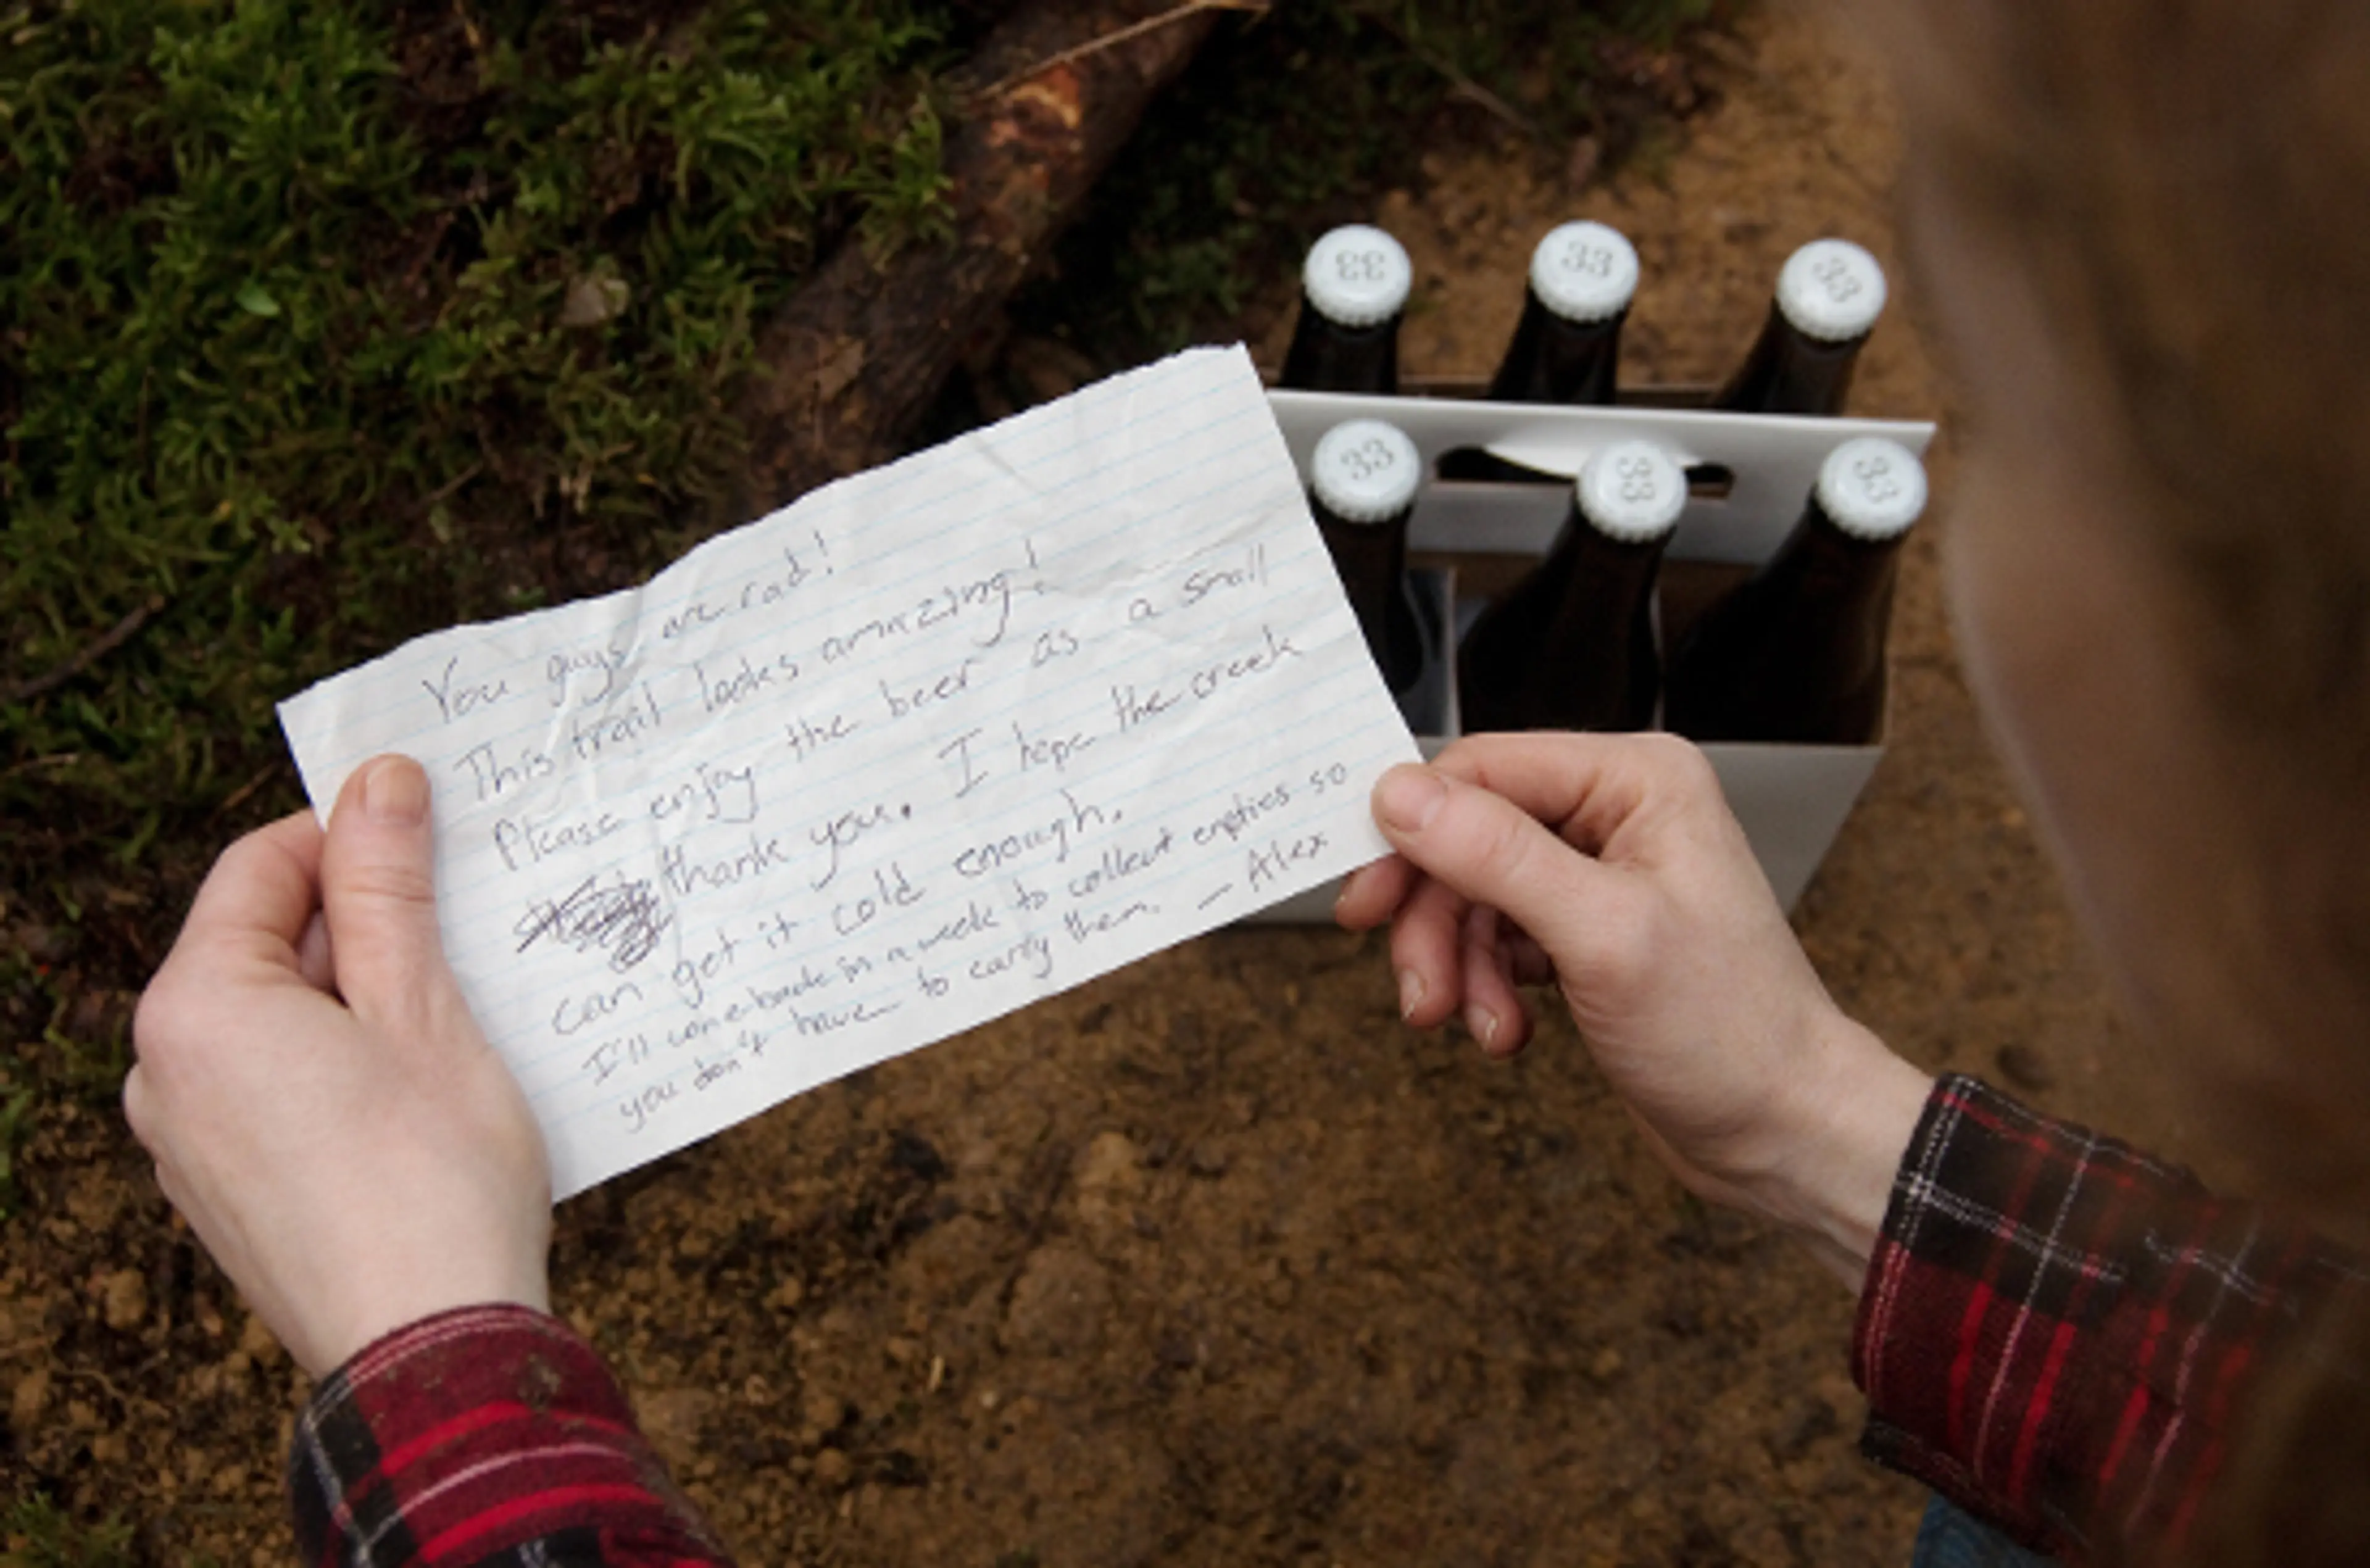 You guys are rad!
This trail looks amazing!
Please enjoy the beer as a small
thank you. I hope the creek
can get it cold enough.
I'll come back in a week to collect empties so
you don't have to carry them. — Alex
33
33
33
33
33
33